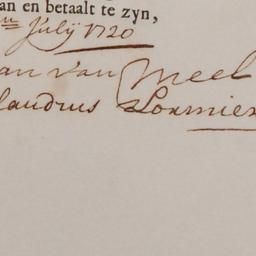 an en betaalt te zyn,
en July 1720
an van Meel
laudius Lormier